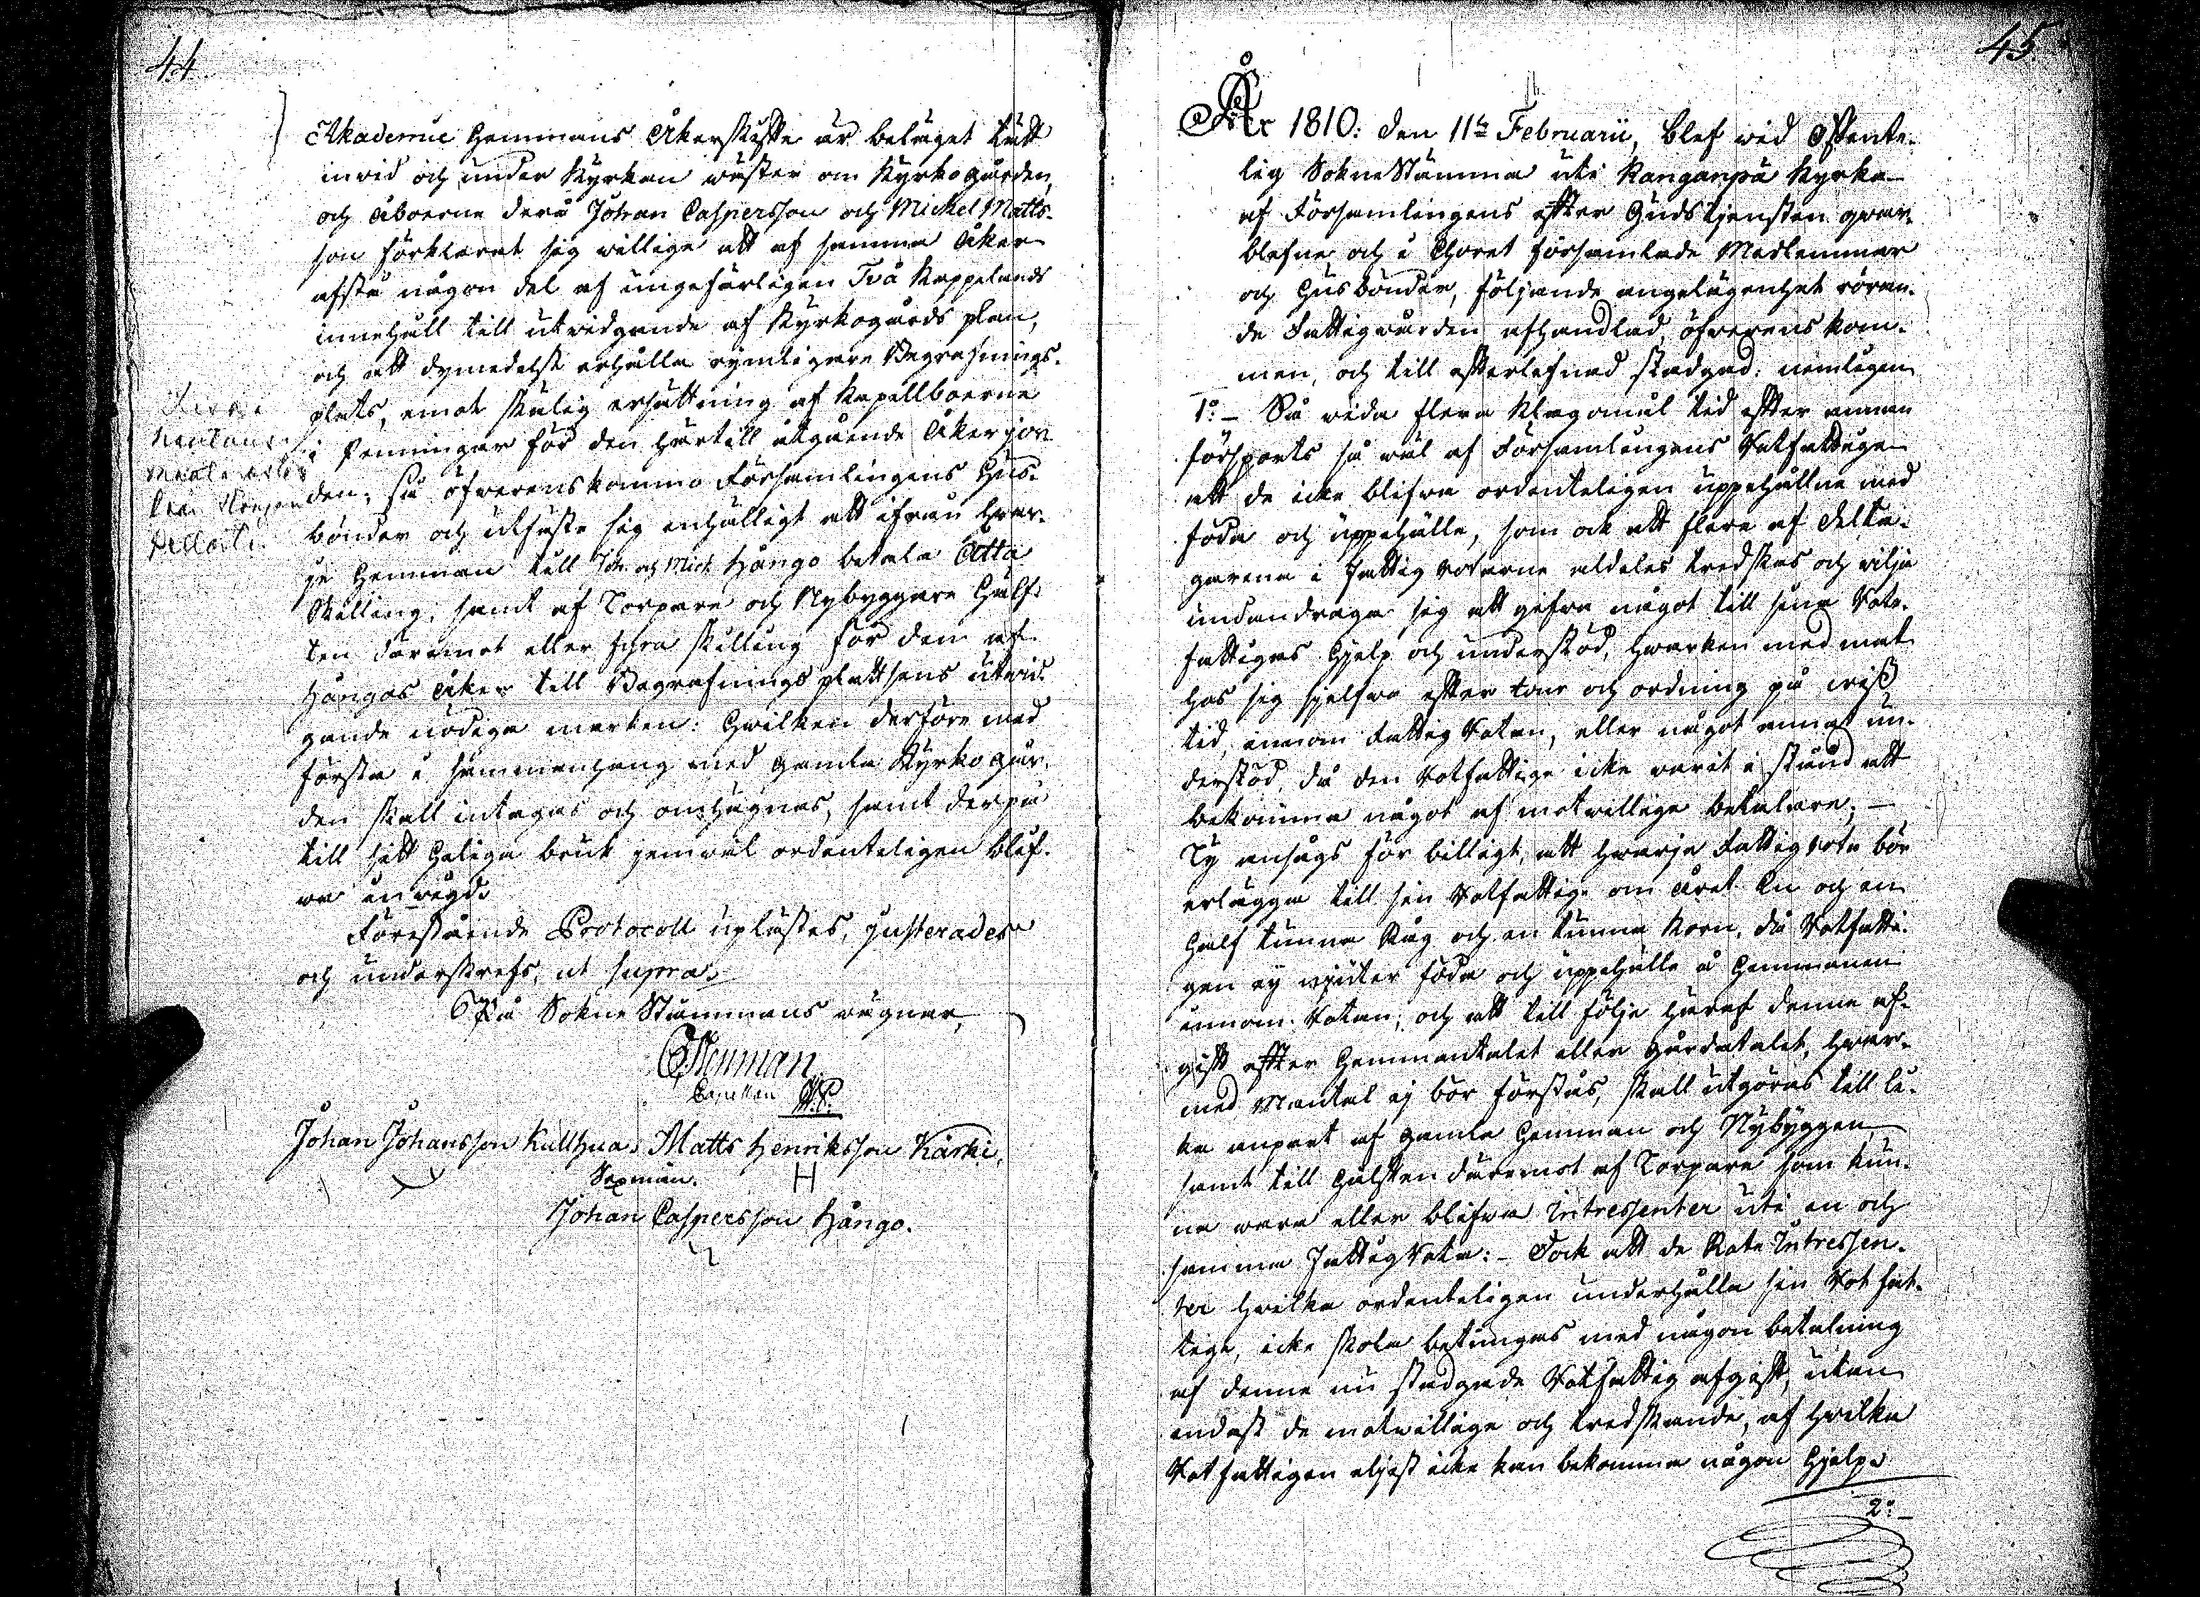 44
Akademie Hemmans Åkerskifte är beläget tätt
invid och under Kyrkan wäster om Kyrkogården,
och åboerne derå Johan Caspersson och Mickel Matts-
son förklarat sig willige att af samma Åker
afstå någon del af ungefärligen Två Kappelands
innehåll till utwidgande af Kyrkogårds plan,
och att dymedelst erhålla rymligare Begrafnings-
plats, emot skälig ersättning af Kapellboerne
i Penningar för den härtill åtgående Åkerjor-
den; så öfwerenskommo Församlingens Hus-
bönder och utfäste sig enhälligt att ifrån hwar-
je Hemman till Joh. och Mich. Hångo betala Åtta
Skilling, samt af Torpare och Nybyggare Hälf-
ten däremot eller fyra skilling för dem af
Hångos åker till Begrafnings plattsens utwid-
gande nödige marken: Hwilken derföre med
första i sammanhang med gamla Kyrkogår-
den skall intagas och omhägnas, samt derpå
till sitt Heliga bruk jemwäl ordenteligen blif-
wa inwigd.
Förestående Protocoll uplästes, justerades
och underskrefs, ut supra.
På Sokne Stämmans wägnar,
Capellan
Johan Johansson Kullhua. Matts Henriksson Kärki,
Sexmän. H
Johan Caspersson Hångo.
45.
År 1810: den 11te Februarii, blef wid Offente-
lig Sokne Stämma uti Kanganpä Kyrka
af Församlingens efter Gudstjensten qwar-
blefne och i Choret församlade Medlemmar
och Husbönder, följande angelägenhet röran-
de Fattigwården afhandlad, öfwerenskom-
men, och till efterlefnad stadgad: nemligen
1o:- Så wida flera Klagomål tid efter annan
försports så wäl af Församlingens Rotfattige
att de icke blifwa ordenteligen uppehållne med
föda och uppehälle, som ock att flere af delta-
garena i Fattig roterne aldeles tredskas och wilja
undandraga sig att gifwa något till sine Rote-
fattigas hjelp och understöd, hwarken med mat
hos sig sjelfwa efter tour och ordning på wiss
tid, innom Fattig Rotan, eller något annat un-
derstöd, då den Rotfattige icke warit i stånd att
bekomma något af motwillige betalare; —
Ty ansågs för billigt, att hwarje Fattig rota bör
erlägga till sin Rotfattige om året En och en
Half tunna Råg och en tunna Korn, då Rotfatti-
gen ej njuter föda och uppehälle å Hemmanen
innom Rotan; och att till följe häraf denne af-
gift efter Hemmantalet eller gårdatalet, hwar-
med Mantal ej bör förstås, skall utgöras till li-
ka anpart af gamla Hemman och Nybyggen,
samt till Hälften däremot af Torpare som kun-
na wara eller blifwa Intressenter uti en och
samma Fattig Rota:- Dock att de Rote Intressen-
ter hwilka ordenteligen underhålla sin Rot fat-
tige, icke skola betungas med någon betalning
af denne nu stadgade Rotfattig afgift, utan
endast de motwillige och tredskande, af hwilka
Rotfattigen eljest icke kan bekomma någon hjelp.
2o:-